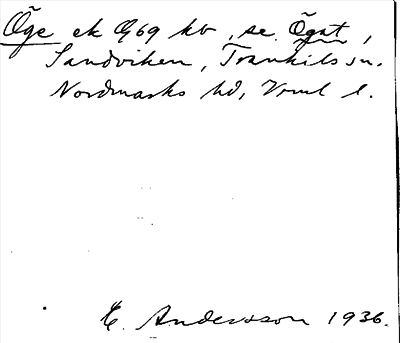 Öge ek Q69 kb, se Ögat,
Sandviken, Trankils sn.
Nordmarks hd, Vrml l.
E. Andersson 1936.